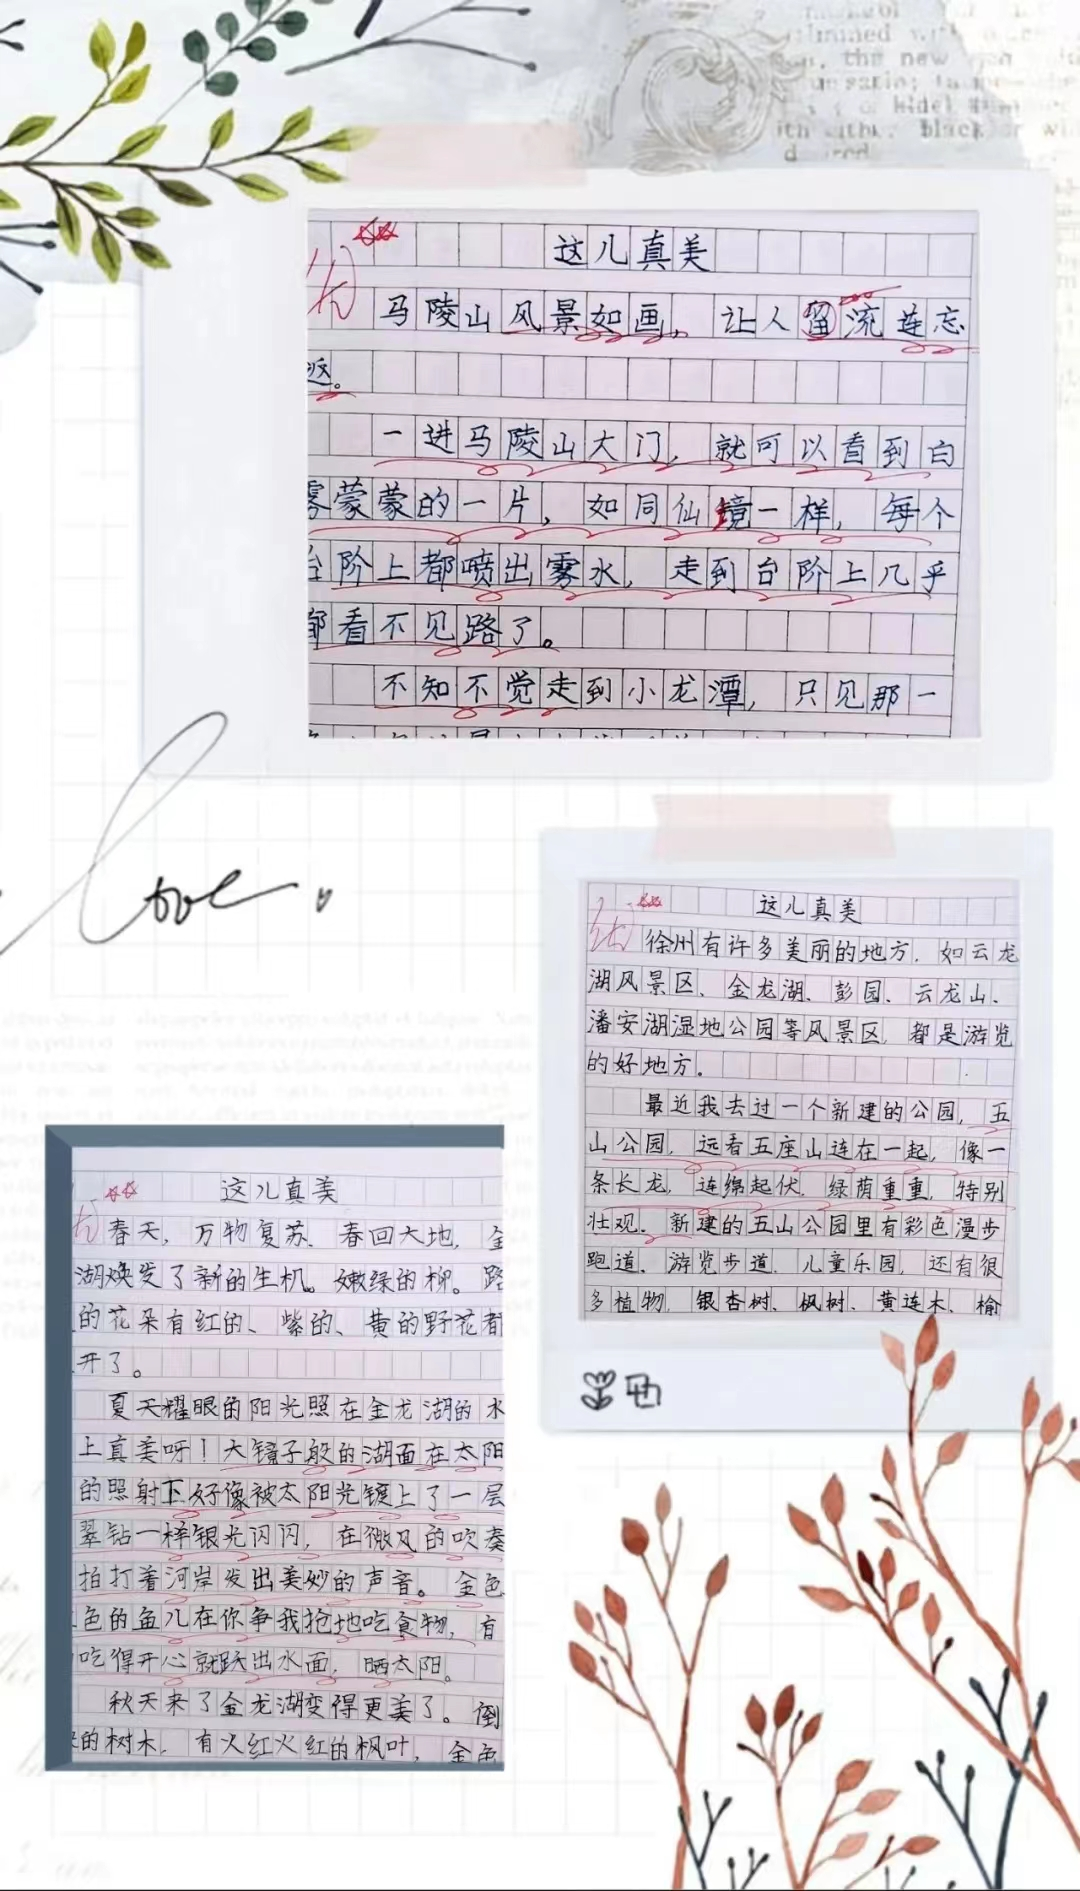 这儿真美
马陵山风景如画，让人留流连忘
返。
一进马陵山大门，就可以看到白
雾蒙蒙的一片，如同仙镜一样，每个
台阶上都喷出雾水，走到台阶上几乎
都看不见路了。
不知不觉走到小龙潭，只见那一
love
这儿真美
徐州有许多美丽的地方，如云龙
湖风景区、金龙湖、彭园、云龙山、
潘安湖湿地公园等风景区，都是游览
的好地方。
最近我去过一个新建的公园，五
山公园，远看五座山连在一起，像一
条长龙，连绵起伏，绿荫重重，特别
壮观。新建的五山公园里有彩色漫步
跑道、游览步道、儿童乐园，还有很
多植物，银杏树、枫树、黄连木、榆
这儿真美
春天，万物复苏、春回大地，金
湖焕发了新的生机。嫩绿的柳。路
的花朵有红的、紫的、黄的野花都
开了。
夏天耀眼的阳光照在金龙湖的水
上真美呀！大镜子般的湖面在太阳
的照射下好像被太阳光镀上了一层
翠钻一样银光闪闪，在微风的吹奏
拍打着河岸发出美妙的声音。金色
色的鱼儿在你争我抢地吃食物，有
吃得开心就跃出水面，晒太阳。
秋天来了金龙湖变得更美了。倒
的树木，有火红火红的枫叶，金色